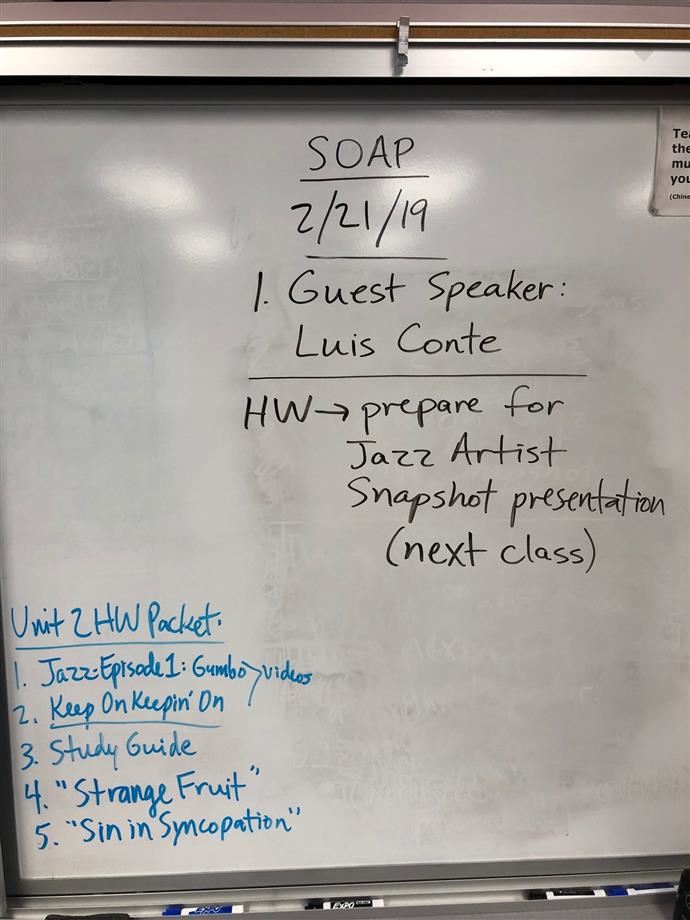 SOAP
2/21/19
1. Guest Speaker:
Luis Conte
HW → prepare for
Jazz Artist
Snapshot presentation
(next class)
Unit 2 HW Packet:
1. Jazz: Episode 1: Gumbo > videos
2. Keep On Keepin' On
3. Study Guide
4. "Strange Fruit"
5. "Sin in Syncopation"
EXPO
EXPO